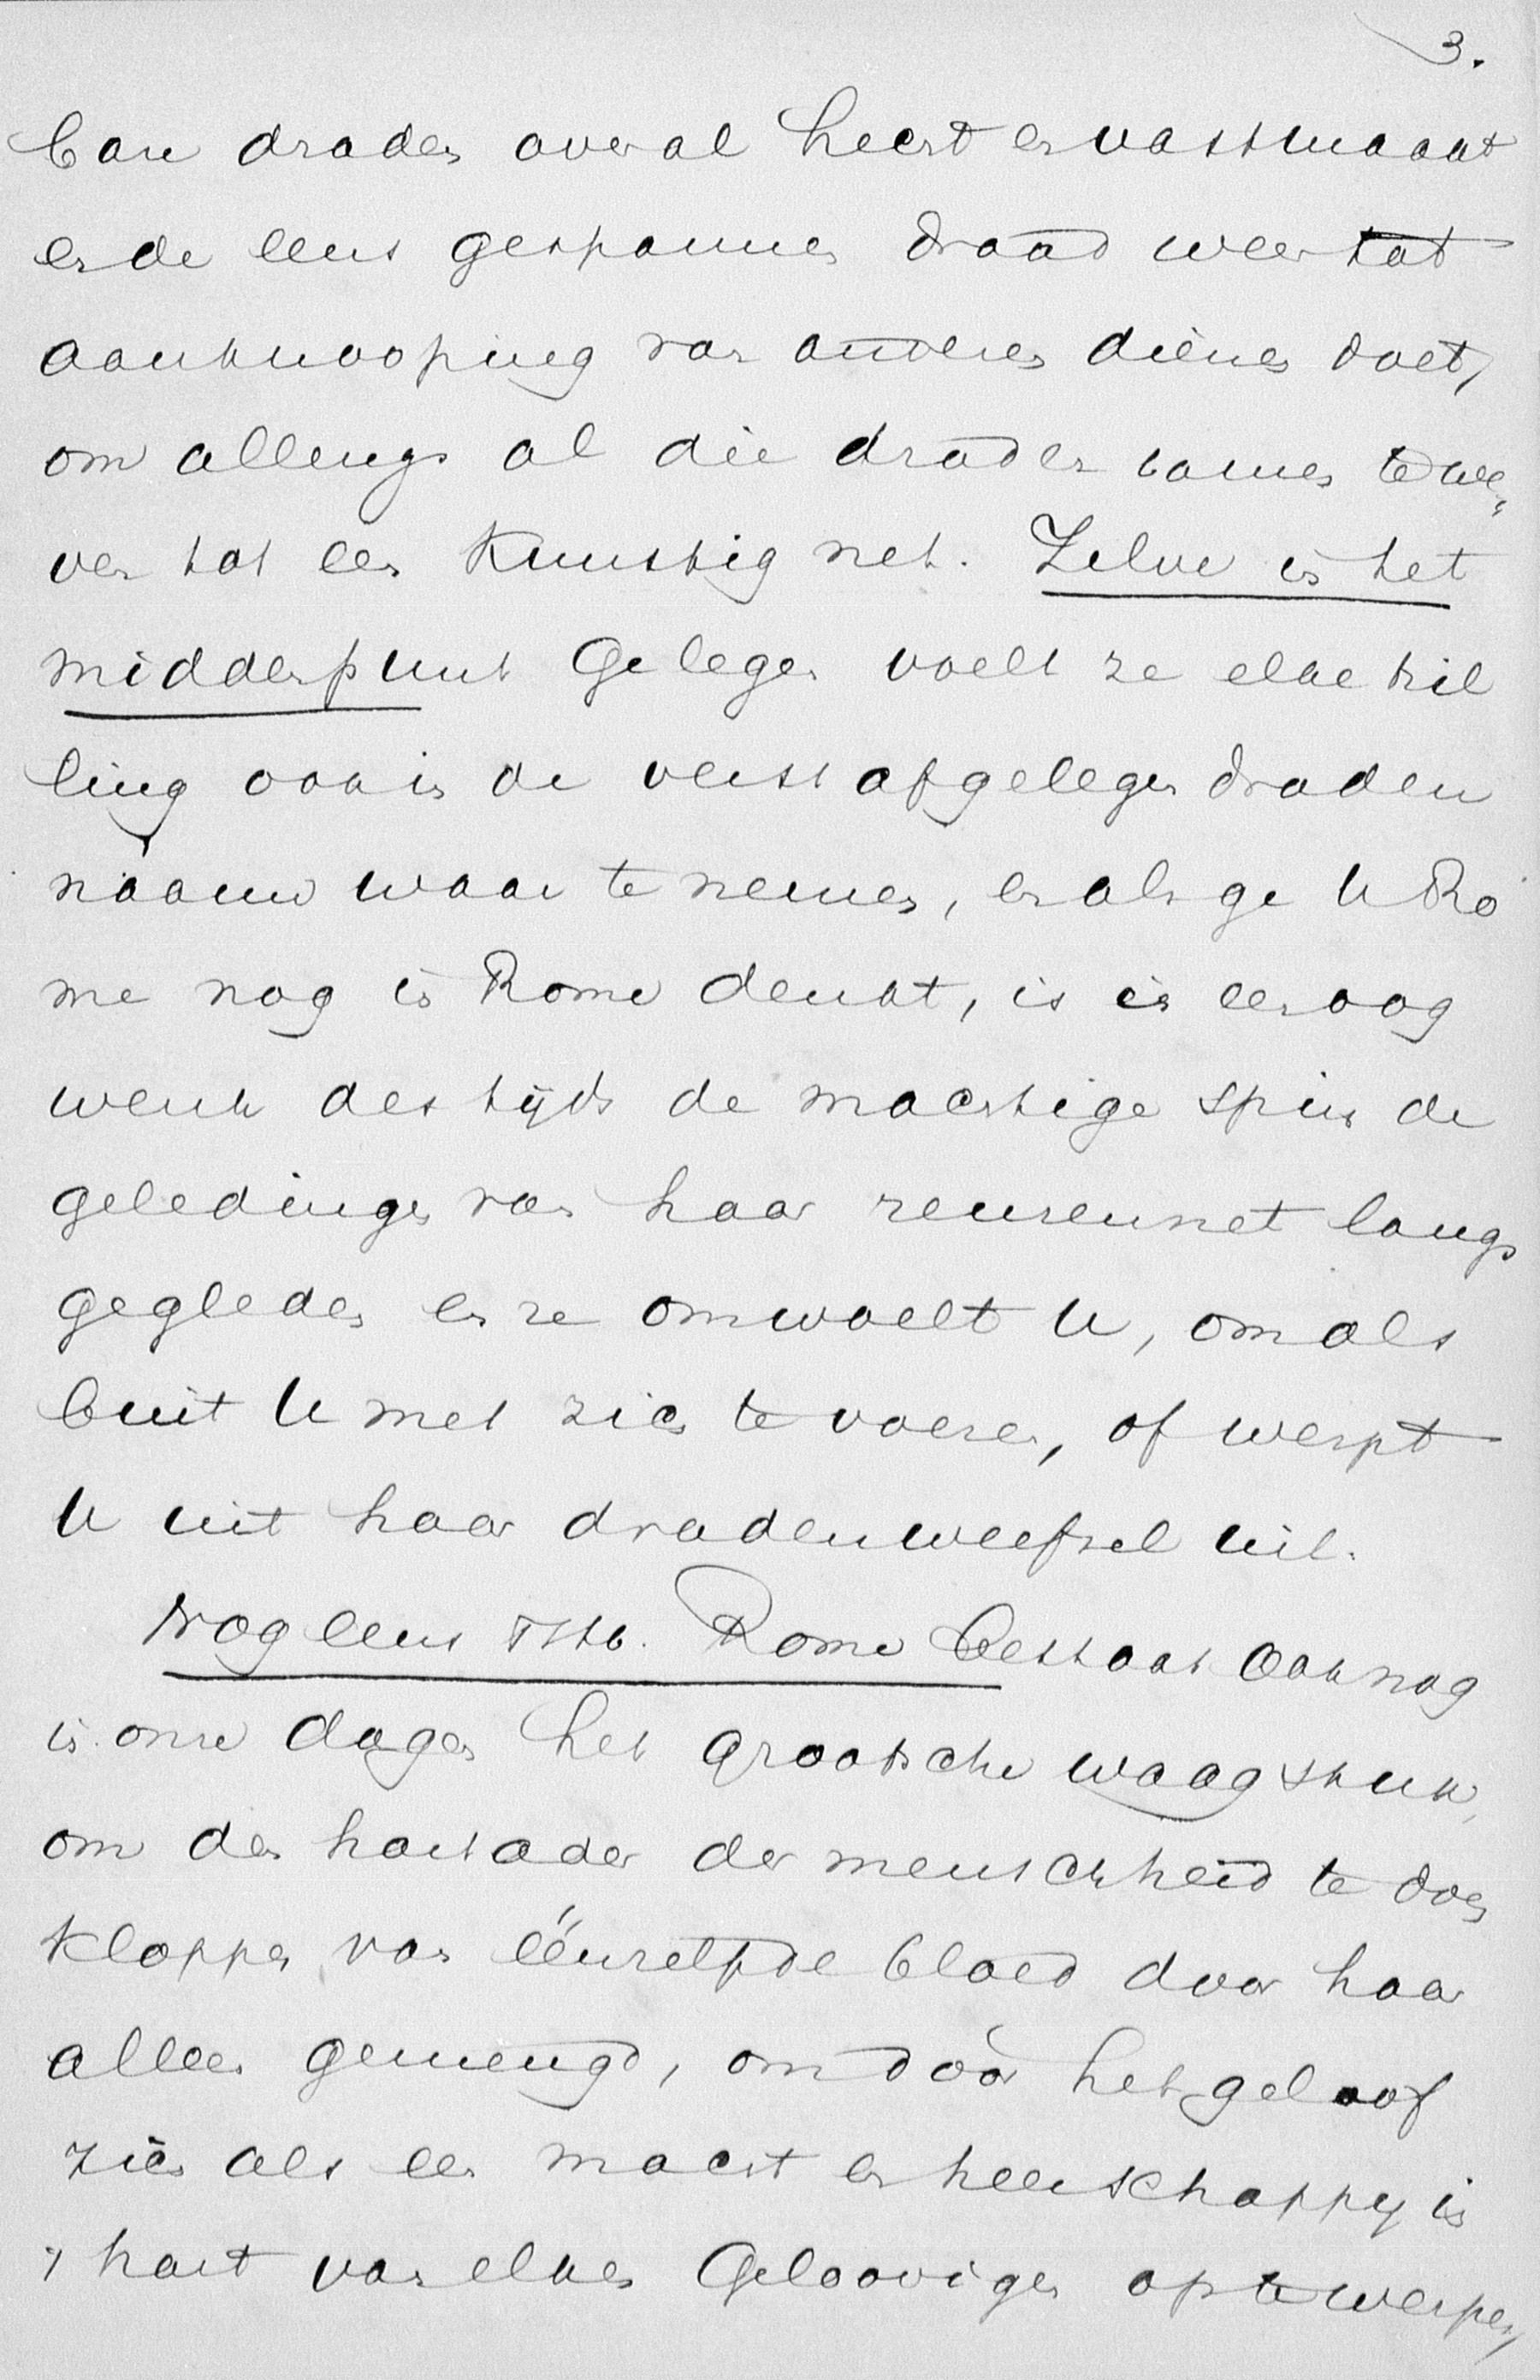 3.
bare draden overal hecht en vastmaakt
en de eens gespannen draad weer tot
aanknooping van anderen dienen doet,
om allengs al die draden samen te we,
ven tot een kunstig net. Zelve in het
middenpunt gelegen voelt ze elke tril
ling ook in de verst afgelegen draden
naauw waar te nemen, en als ge U Ro
me nog in Rome denkt, is in een oog
wenk des tijds de machtige spin de
geledingen van haar reuzennet langs
gegleden en ze omwoelt U, om als
buit U met zich te voeren, of werpt
U uit haar dradenweefsel uit.
Nog eens Rome bestaat ook nog
in onze dagen het grootsche waagstuk,
om den hartader der menschheid te doen
kloppen van éénzelfde bloed door haar
alleen gemengd, om dóór het geloof
zich als een macht en heerschappy in
't hart van elken Geloovigen op te werpen,